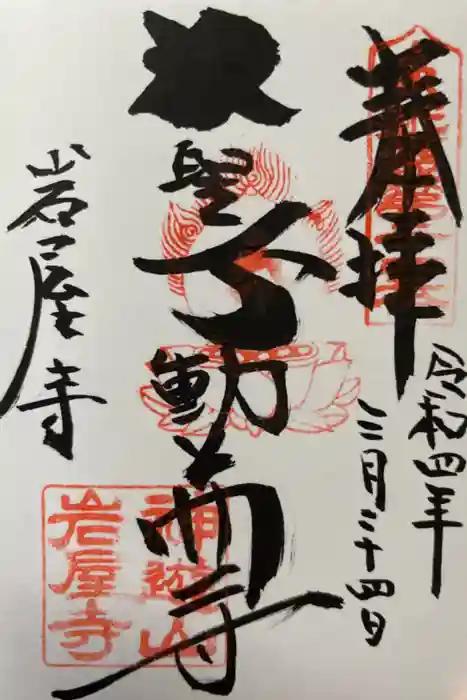 奉拝
令和四年
三月二十四日
大聖不動尊
岩屋寺
神遊山
岩屋寺